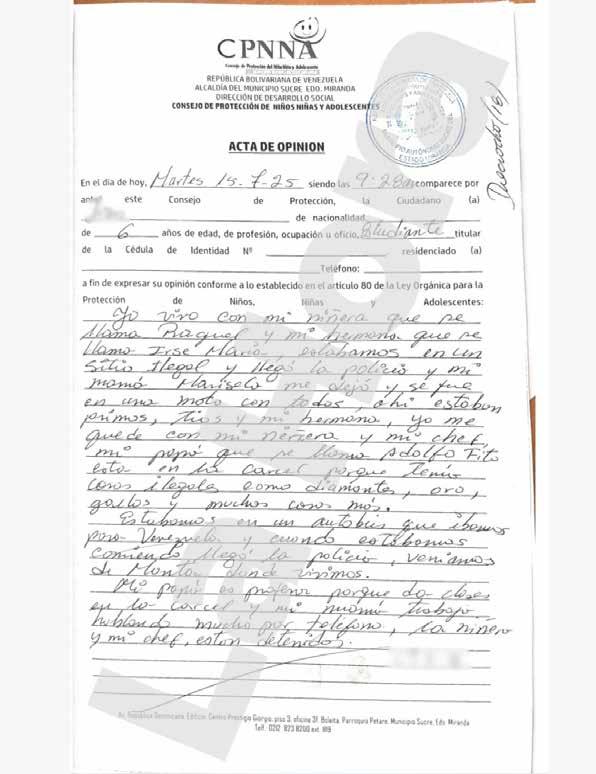 CPNNA
Consejo de Protección del Niño Niña y Adolescente
REPÚBLICA BOLIVARIANA DE VENEZUELA
ALCALDÍA DEL MUNICIPIO SUCRE. EDO. MIRANDA
DIRECCIÓN DE DESARROLLO SOCIAL
CONSEJO DE PROTECCIÓN DE NIÑOS NIÑAS Y ADOLESCENTES
ESTADO MIRANDA
(16)
ACTA DE OPINION
En el día de hoy, Martes 15-7-25 siendo las 9:28am comparece por
ante este Consejo de Protección, la Ciudadano (a)
de nacionalidad
de 6 años de edad, de profesión, ocupación u oficio, Estudiante titular
de la Cédula de Identidad Nº residenciado (a)
Teléfono:
a fin de expresar su opinión conforme a lo establecido en el artículo 80 de la Ley Orgánica para la
Protección de Niños, Niñas y Adolescentes:
Yo vivo con mi niñera que se
llama Raquel y mi hermana que se
llama Irse María, estabamos en un
Sitio Ilegal y llegó la policia y mi
mamá Marisela me dejó y se fue
en una moto con todos, ahi estaban
primos, tios y mi hermana, yo me
quede con mi niñera y mi chef,
mi papá que se llama Adolfo Fito
esta en la carcel porque tenia
cosas ilegales como diamantes, oro,
gallos y muchas cosas más.
Estubamos en un autobús que ibamos
para Venezuela y cuando estabamos
comiendo llegó la policia, veniamos
de Manta donde vivimos.
Mi papá es profesor porque da clases
en la carcel y mi mamá trabaja
hablando mucho por teléfono, la niñera
y mi chef, estan detenidos.
Av. República Dominicana. Edificio. Centro Prestigio Giorgio, piso 3, oficina 3F. Boleita. Parroquia Petare. Municipio Sucre. Edo. Miranda
Telf. 0212 823 8200 ext. 819
La Hora